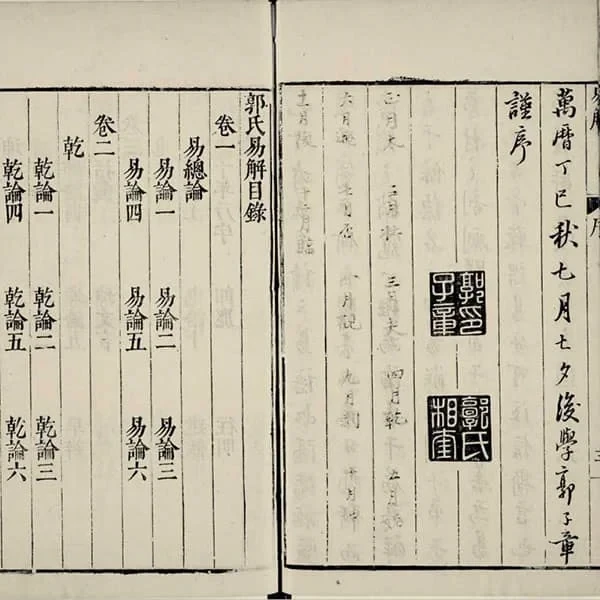 易解 序 三
萬曆丁巳秋七月七夕後學郭子章
謹序
郭印子章
郭氏相奎
正月泰 三月夬 四月乾 五月
六月遯 七月否 月觀 九月剝 十月
十一月復 十二月臨
郭氏易解目錄
卷一
易總論
易論一 易論二 易論三
易論四 易論五 易論六
卷二
乾
乾論一 乾論二 乾論三
乾論四 乾論五 乾論六